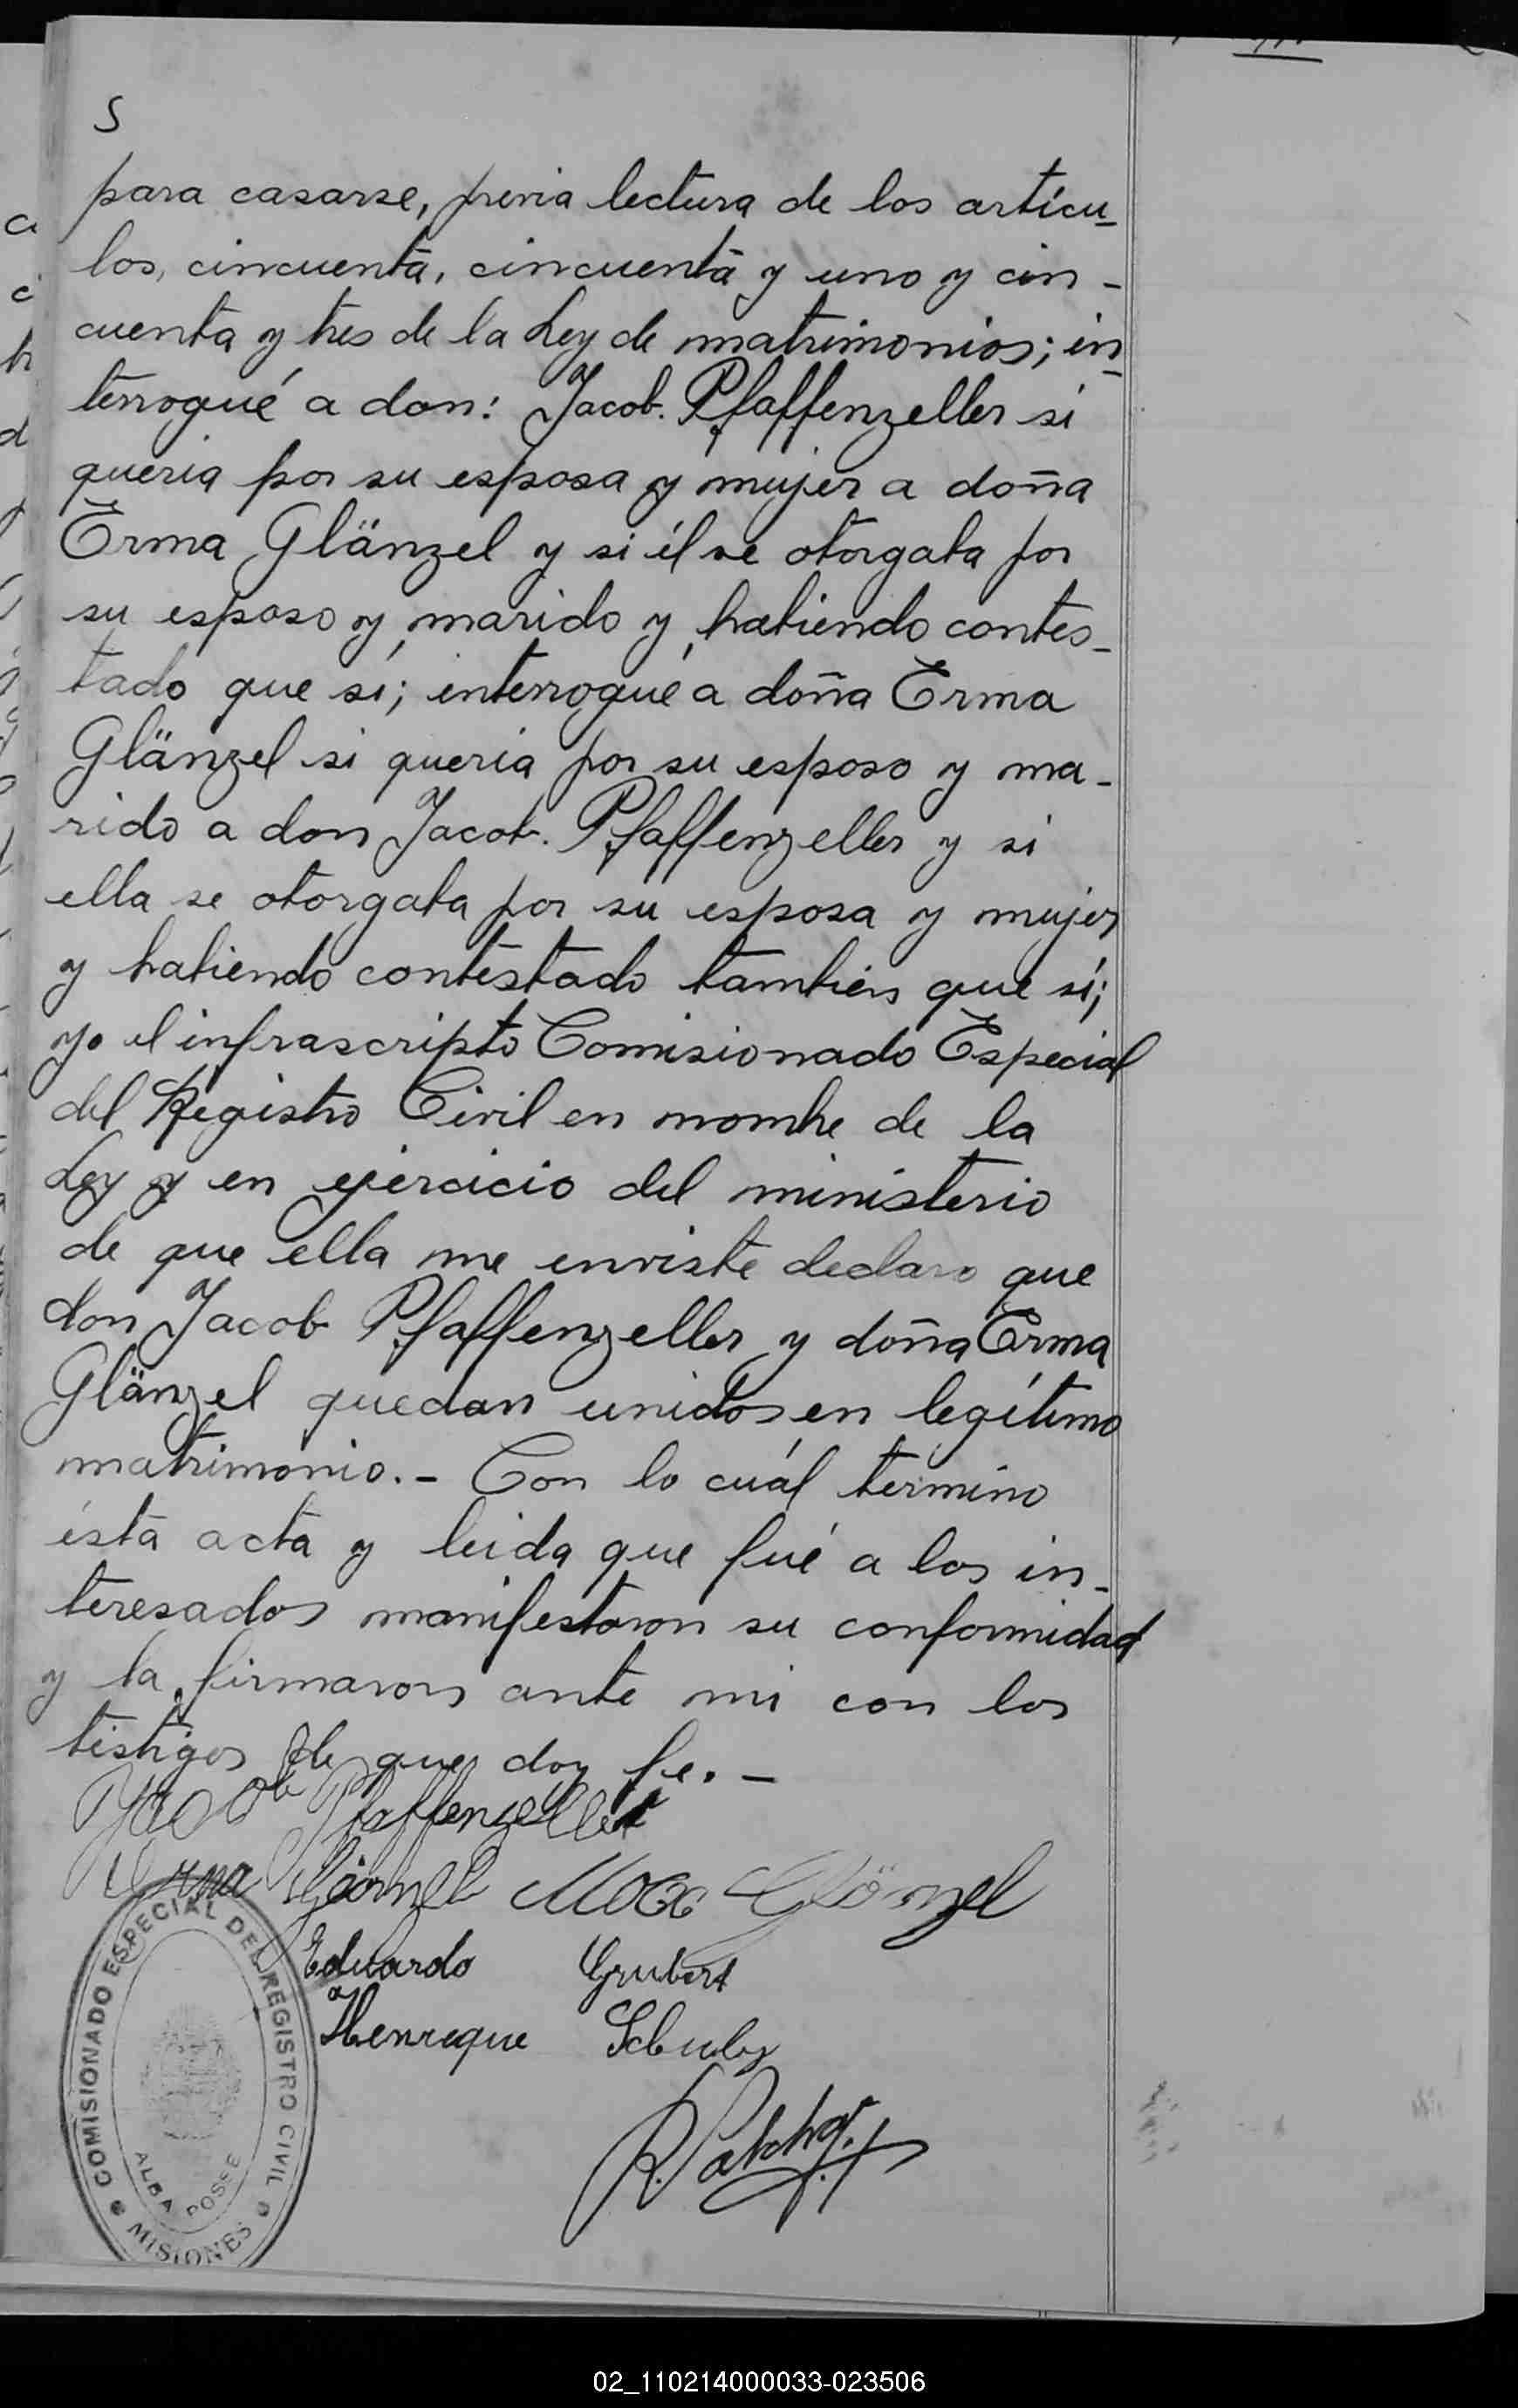 5
para casarse, previa lectura de los artícu_
los, cincuenta, cincuenta y uno y cin-
cuenta y tres de la Ley de matrimonios; in_
terrogué a don: Jacob. Pfaffenzeller si
queria por su esposa y mujer a doña
Erma Glänzel y si él se otorgaba por
su esposo y marido y, habiendo contes_
tado que sí; interrogué a doña Erma
Glänzel si queria por su esposo y ma-
rido a don Jacob. Pfaffenzeller y si
ella se otorgaba por su esposa y mujer
y habiendo contestado tambien que sí;
yo el infrascripto Comisionado Especial
del Registro Civil en nombre de la
Ley y en ejercicio del ministerio
de que ella me enviste declaro que
don Jacob Pfaffenzeller y doña Erma
Glänzel quedan unidos en legítimo
matrimonio.- Con lo cuál termino
ésta acta y leida que fué a los in_
teresados manifestaron su conformidad
y la firmaron ante mi con los
testigos de que doy fe.-
Jacob Pfaffenzeller
Erma Glänzel Max Glänzel
Eduardo Grubert
Henrique
COMISIONADO ESPECIAL DEL REGISTRO CIVIL
ALBA POSSE
MISIONES
02_110214000033-023506